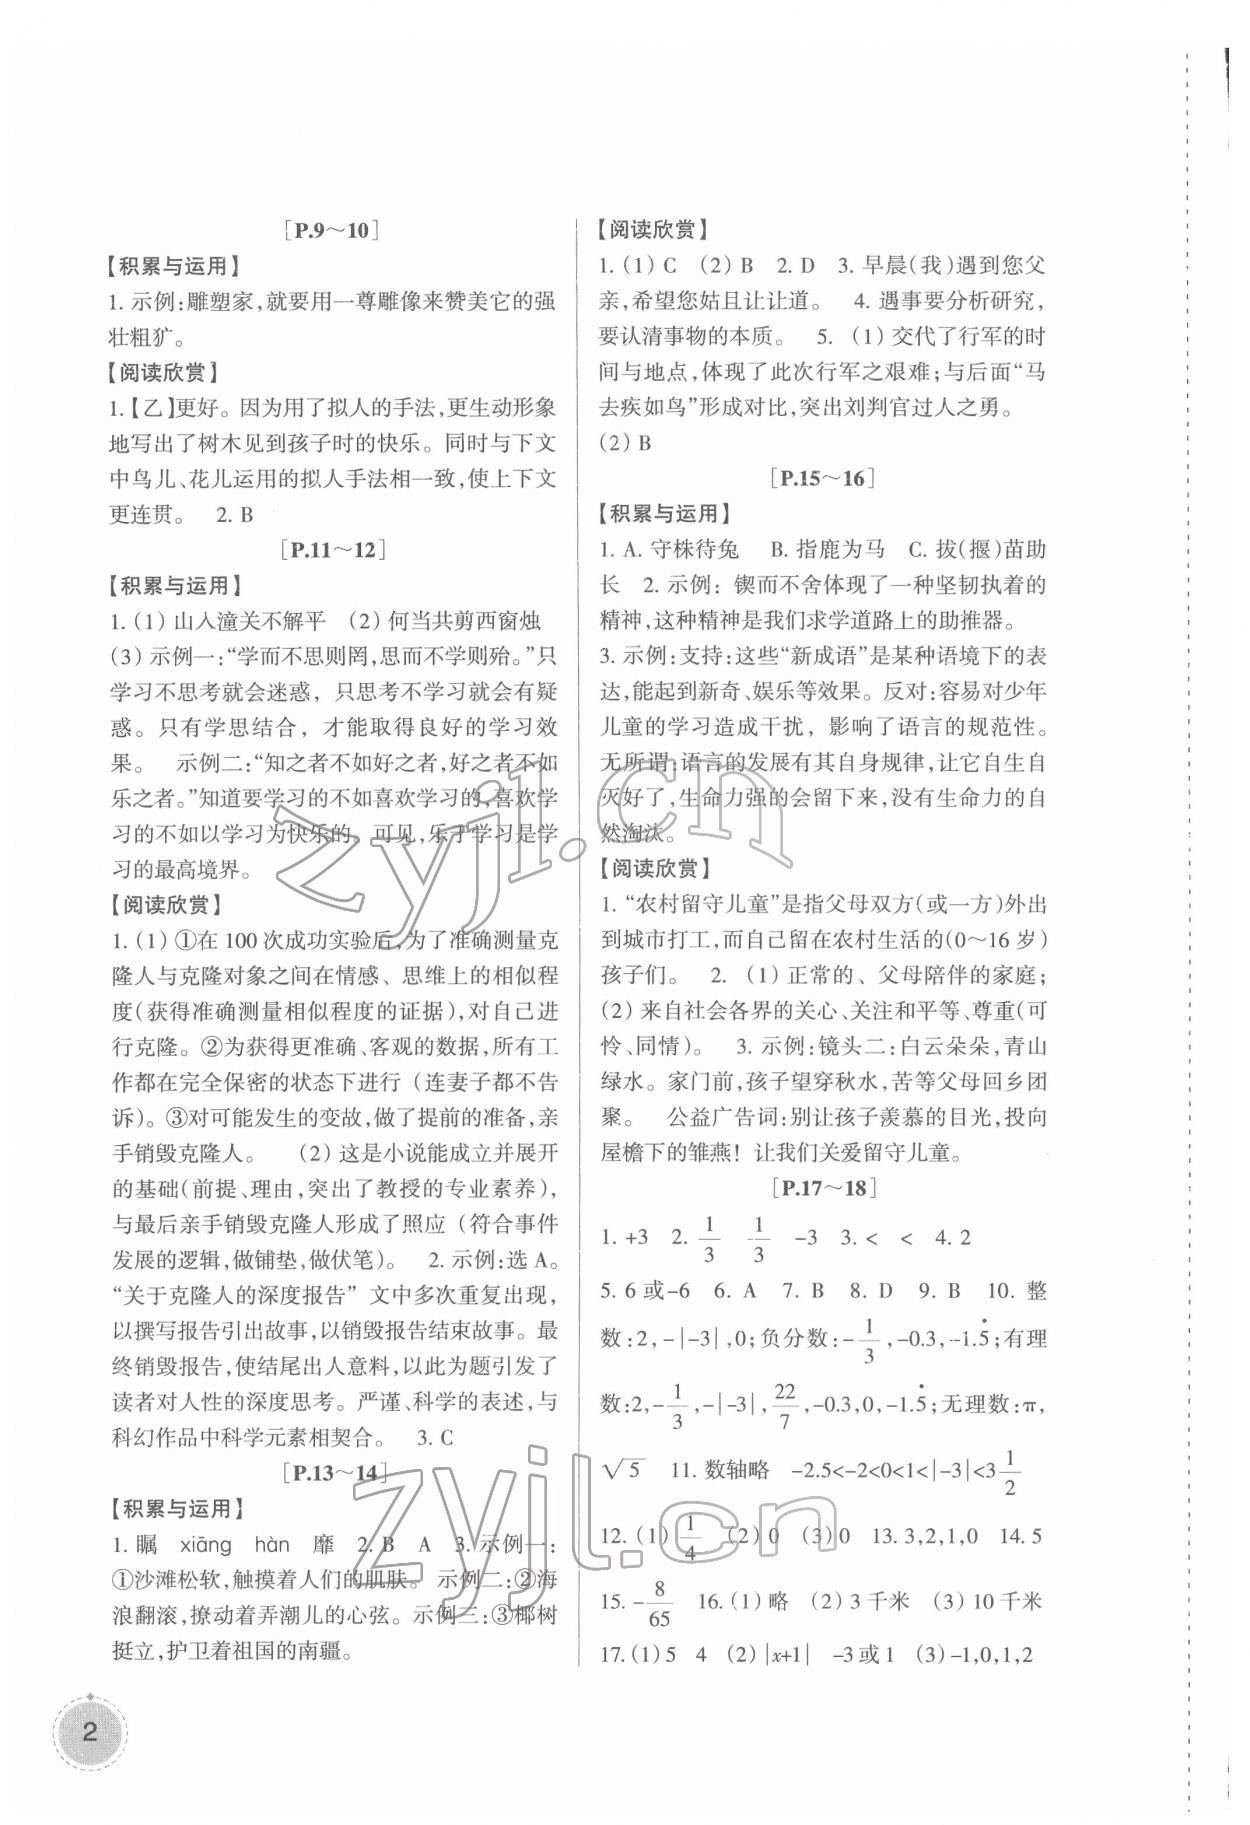 [P.9～10]
【积累与运用】
1. 示例:雕塑家,就要用一尊雕像来赞美它的强
壮粗犷。
【阅读欣赏】
1.【乙】更好。因为用了拟人的手法,更生动形象
地写出了树木见到孩子时的快乐。同时与下文
中鸟儿、花儿运用的拟人手法相一致,使上下文
更连贯。 2. B
[P.11～12]
【积累与运用】
1. (1) 山入潼关不解平 (2) 何当共剪西窗烛
(3) 示例一:“学而不思则罔,思而不学则殆。”只
学习不思考就会迷惑，只思考不学习就会有疑
惑。只有学思结合，才能取得良好的学习效
果。 示例二:“知之者不如好之者,好之者不如
乐之者。”知道要学习的不如喜欢学习的,喜欢学
习的不如以学习为快乐的。可见,乐于学习是学
习的最高境界。
【阅读欣赏】
1. (1) ①在 100 次成功实验后,为了准确测量克
隆人与克隆对象之间在情感、思维上的相似程
度(获得准确测量相似程度的证据),对自己进
行克隆。②为获得更准确、客观的数据,所有工
作都在完全保密的状态下进行 (连妻子都不告
诉)。③对可能发生的变故,做了提前的准备,亲
手销毁克隆人。 (2) 这是小说能成立并展开
的基础(前提、理由,突出了教授的专业素养),
与最后亲手销毁克隆人形成了照应 (符合事件
发展的逻辑,做铺垫,做伏笔)。 2. 示例:选 A。
“关于克隆人的深度报告” 文中多次重复出现,
以撰写报告引出故事,以销毁报告结束故事。最
终销毁报告,使结尾出人意料,以此为题引发了
读者对人性的深度思考。严谨、科学的表述,与
科幻作品中科学元素相契合。 3. C
[P.13～14]
【积累与运用】
1. 瞩 xiāng hàn 靡 2. B A 3. 示例一:
①沙滩松软,触摸着人们的肌肤。 示例二:②海
浪翻滚,撩动着弄潮儿的心弦。示例三:③椰树
挺立,护卫着祖国的南疆。
【阅读欣赏】
1. (1) C (2) B 2. D 3. 早晨(我)遇到您父
亲,希望您姑且让让道。 4. 遇事要分析研究,
要认清事物的本质。 5. (1) 交代了行军的时
间与地点,体现了此次行军之艰难;与后面“马
去疾如鸟”形成对比,突出刘判官过人之勇。
(2) B
[P.15～16]
【积累与运用】
1. A. 守株待兔 B. 指鹿为马 C. 拔(揠)苗助
长 2. 示例: 锲而不舍体现了一种坚韧执着的
精神,这种精神是我们求学道路上的助推器。
3. 示例:支持:这些“新成语”是某种语境下的表
达,能起到新奇、娱乐等效果。反对:容易对少年
儿童的学习造成干扰，影响了语言的规范性。
无所谓:语言的发展有其自身规律,让它自生自
灭好了,生命力强的会留下来,没有生命力的自
然淘汰。
【阅读欣赏】
1. “农村留守儿童”是指父母双方(或一方)外出
到城市打工,而自己留在农村生活的(0～16 岁)
孩子们。 2. (1) 正常的、父母陪伴的家庭;
(2) 来自社会各界的关心、关注和平等、尊重(可
怜、同情)。 3. 示例:镜头二:白云朵朵,青山
绿水。家门前,孩子望穿秋水,苦等父母回乡团
聚。 公益广告词:别让孩子羡慕的目光,投向
屋檐下的雏燕! 让我们关爱留守儿童。
[P.17～18]
1. +3 2. 1/3 1/3 -3 3. < < 4. 2
5. 6 或-6 6. A 7. B 8. D 9. B 10. 整
数:2,-|-3|,0;负分数:-1/3,-0.3,-1.5̇;有理
数:2,-1/3,-|-3|,22/7,-0.3,0,-1.5̇;无理数:π,
√5 11. 数轴略 -2.5<-2<0<1<|-3|<3 1/2
12. (1) 1/4 (2) 0 (3) 0 13. 3,2,1,0 14. 5
15. -8/65 16. (1) 略 (2) 3 千米 (3) 10 千米
17. (1) 5 4 (2) |x+1| -3或1 (3) -1,0,1,2
2
zyjl.cn
zyjl.cn